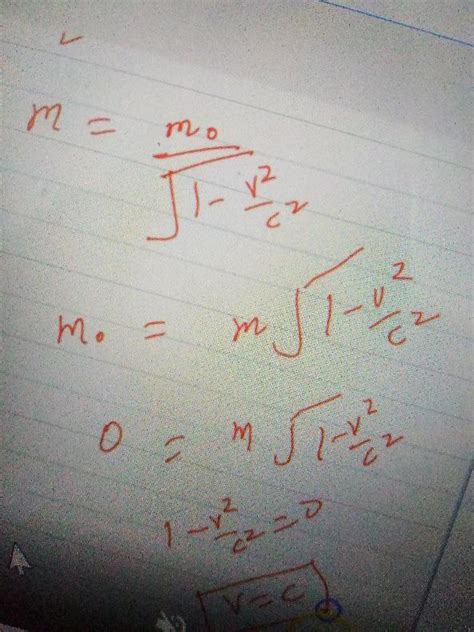 m = m₀ / √(1 - v²/c²)
m₀ = m √(1 - v²/c²)
0 = m √(1 - v²/c²)
1 - v²/c² = 0
v = c